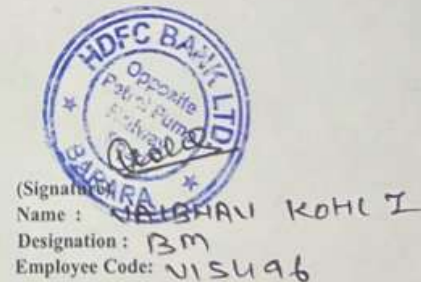 HDFC BANK LTD
Opposite
Petrol Pump
Railway
BARARA
(Signature)
Name : VAIBHAV KOHLI
Designation : BM
Employee Code: V15496